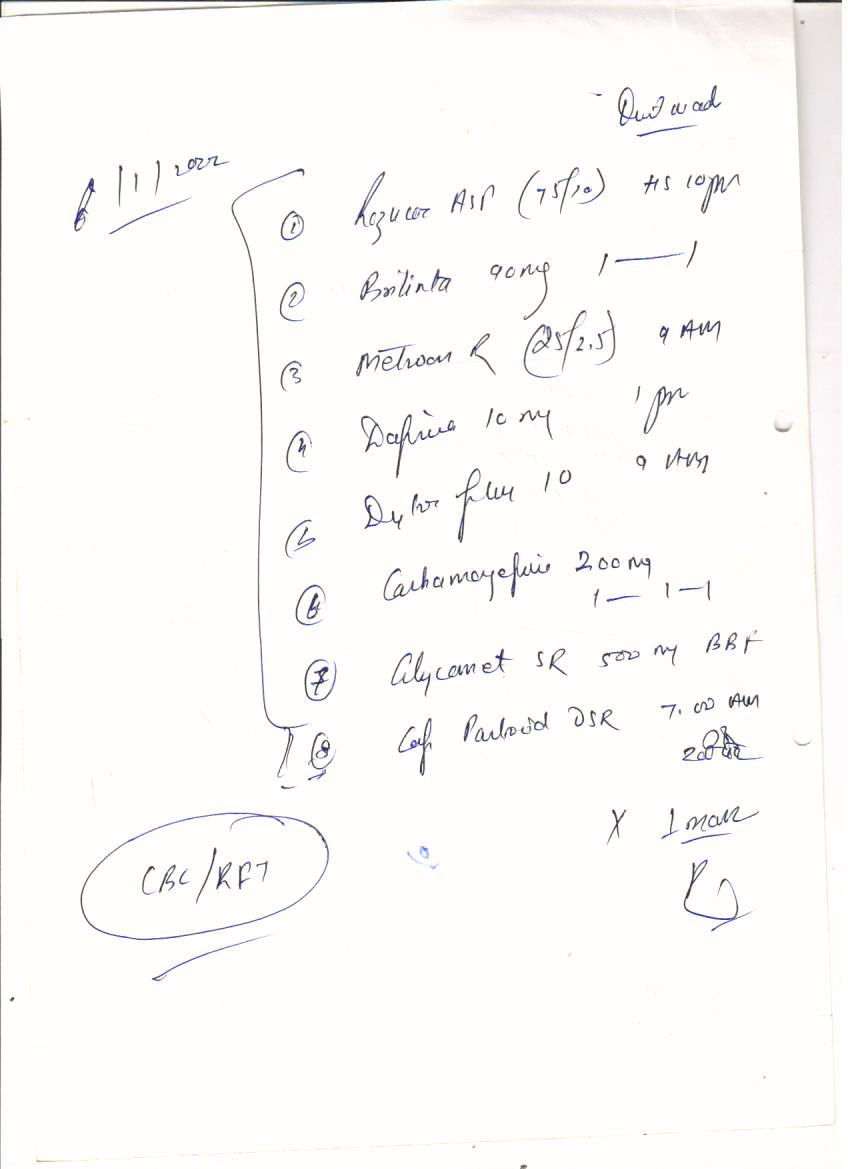 6/1/2022
① Rozucor ASP (75/10) HS 10pm
② Brilinta 90mg 1——1
③ Metrocon R (25/2.5) 9 AM
④ 10 mg 1 pm
5 Dytor plus 10 9 AM
⑥ Carbamazepine 200mg
1— 1—1
⑦ Glycomet SR 500 mg BBF
⑧ Cap DSR 7.00 AM
X 1
CBC/RFT